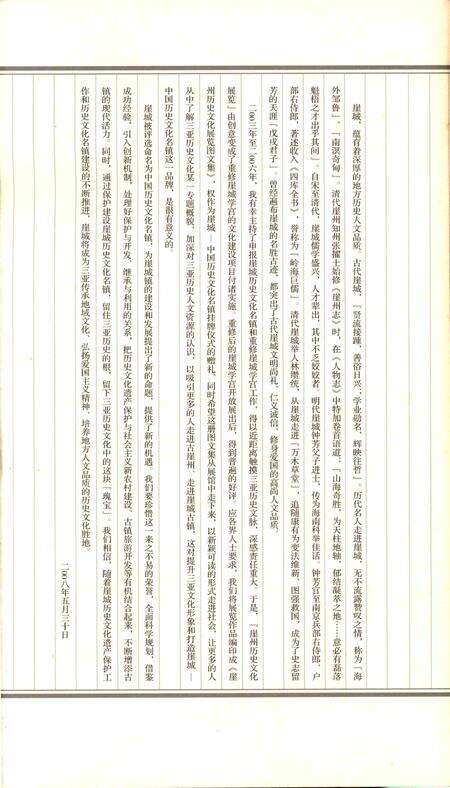 崖城，蕴育着深厚的地方历史人文品质。古代崖城，「贤流接踵，善俗日兴；学业勋名，辉映往哲」。历代名人走进崖城，无不流露赞叹之情，称为「海
外邹鲁」、「南溟奇甸」。清代崖州知州张擢士始修《崖州志》时，在《人物志》中特加卷首语道：「山海奇胜，为天柱地轴，郁结凝萃之地……意必有磊落
魁梧之才出乎其间」。自宋至清代，崖城儒学盛兴，人才辈出，其中不乏姣姣者。明代崖城钟芳父子进士，传为海南科举佳话，钟芳官至南京兵部右侍郎、户
部右侍郎，著述收入《四库全书》，誉称为「岭海巨儒」。清代崖城举人林缵统，从崖城走进「万木草堂」，追随康有为变法维新，图强救国，成为了史志留
芳的天涯「戊戌君子」。曾经遍布崖城的名胜古迹，都突出了古代崖城文明尚礼、仁义诚信、修身爱国的高尚人文品质。
二〇〇三年至二〇〇六年，我有幸主持了申报崖城历史文化名镇和重修崖城学宫工作，得以近距离触摸三亚历史文脉，深感责任重大。于是，「崖州历史文化
展览」由创意变成了重修崖城学宫的文化建设项目付诸实施。重修后的崖城学宫开放展出后，得到普遍的好评。应各界人士要求，我们将展览作品编印成《崖
州历史文化展览图文集》，权作为崖城—中国历史文化名镇挂牌仪式的赠礼，同时希望这册图文集从展馆中走下来，以新颖可读的形式走进社会，让更多的人
从中了解三亚历史文化某一专题概貌，加深对三亚历史人文资源的认识，以吸引更多的人走进古崖州，走进崖城古镇，这对提升三亚文化形象和打造崖城—
中国历史文化名镇这一品牌，是很有意义的。
崖城被评选命名为中国历史文化名镇，为崖城镇的建设和发展提出了新的命题，提供了新的机遇。我们要珍惜这一来之不易的荣誉，全面科学规划，借鉴
成功经验，引入创新机制，处理好保护与开发、继承与利用的关系，把历史文化遗产保护与社会主义新农村建设、古镇旅游开发等有机结合起来，不断增添古
镇的现代活力，同时，通过保护建设崖城历史文化名镇，留住三亚历史的根，留下三亚历史文化中的这块「瑰宝」。我们相信，随着崖城历史文化遗产保护工
作和历史文化名镇建设的不断推进，崖城将成为三亚传承地域文化、弘扬爱国主义精神、培养地方人文品质的历史文化胜地。
二〇〇八年五月三十日